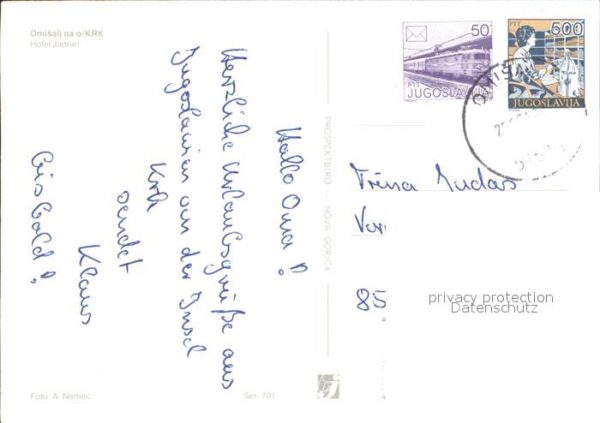 Omišalj na o/KRK
Hotel Jadran
Hallo Oma!
Herzliche Urlaubsgrüße aus
Jugoslawien von der Insel
Krk
sendet
Klaus
Bis bald!
PROSPEKTBIRO — NOVA GORICA
50
PTT
JUGOSLAVIJA
PTT
500
JUGOSLAVIJA
Trina Judas
85
privacy protection
Datenschutz
Foto: A. Nemec
Ser. 701